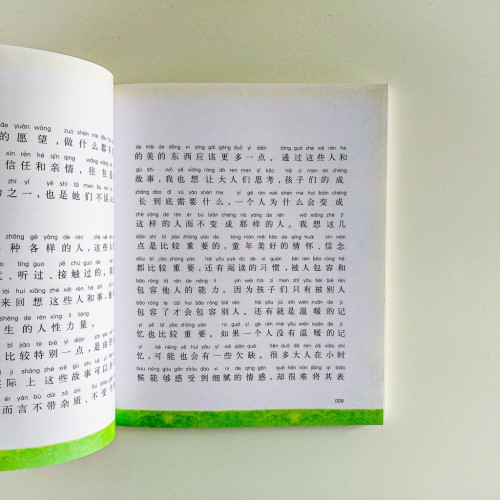 de yuàn wàng zuò shén me
的愿望,做什么都
xìn rèn hé qīn qíng
信任和亲情,往往
zhī yī yě shì tā men
之一,也是她们不
zhǒng gè yàng de rén zhè xiē
种各样的人,这些
tīng guo jiē chù guo de
过、听过、接触过的,
lái huí xiǎng zhè xiē rén hé shì
来回想这些人和事,他
shēng de rén xìng lì liang
生的人性力量。
bǐ jiào tè bié yì diǎn shì
比较特别一点,是由
jì shàng zhè xiē gù shi kě yǐ
际上这些故事可以
ér yán bú dài zá zhì bú shòu
而言不带杂质、不受
de měi de dōng xi yīng gāi gèng duō yì diǎn tōng guò zhè xiē rén hé
的美的东西应该更多一点。通过这些人和
gù shi wǒ yě xiǎng ràng dà ren men sī kǎo hái zi men de chéng
故事,我也想让大人们思考,孩子们的成
zhǎng dào dǐ xū yào shén me yí gè rén wèi shén me huì biàn chéng
长到底需要什么,一个人为什么会变成
zhè yàng de rén ér bú biàn chéng nà yàng de rén wǒ xiǎng zhè jǐ
这样的人而不变成那样的人。我想这几
diǎn shì bǐ jiào zhòng yào de tóng nián měi hǎo de qíng huái xìn niàn
点是比较重要的,童年美好的情怀、信念
dōu bǐ jiào zhòng yào hái yǒu yuè dú de xí guàn bèi bāo róng hé
都比较重要,还有阅读的习惯,被人包容和
bāo róng tā rén de néng lì yīn wèi hái zi men zhǐ yǒu bèi bié rén
包容他人的能力。因为孩子们只有被别人
bāo róng le cái huì bāo róng bié rén hái yǒu jiù shì wēn nuǎn de jì
包容了才会包容别人。还有就是温暖的记
yì yě bǐ jiào zhòng yào rú guǒ yí gè rén méi yǒu wēn nuǎn de jì
忆也比较重要。如果一个人没有温暖的记
yì kě néng yě huì yǒu yì xiē qiàn quē hěn duō dà ren zài xiǎo shí
忆,可能也会有一些欠缺。很多大人在小时
hou néng gòu gǎn shòu dào xì nì de qíng gǎn què hěn nán jiāng qí biǎo
候能够感受到细腻的情感,却很难将其表
009